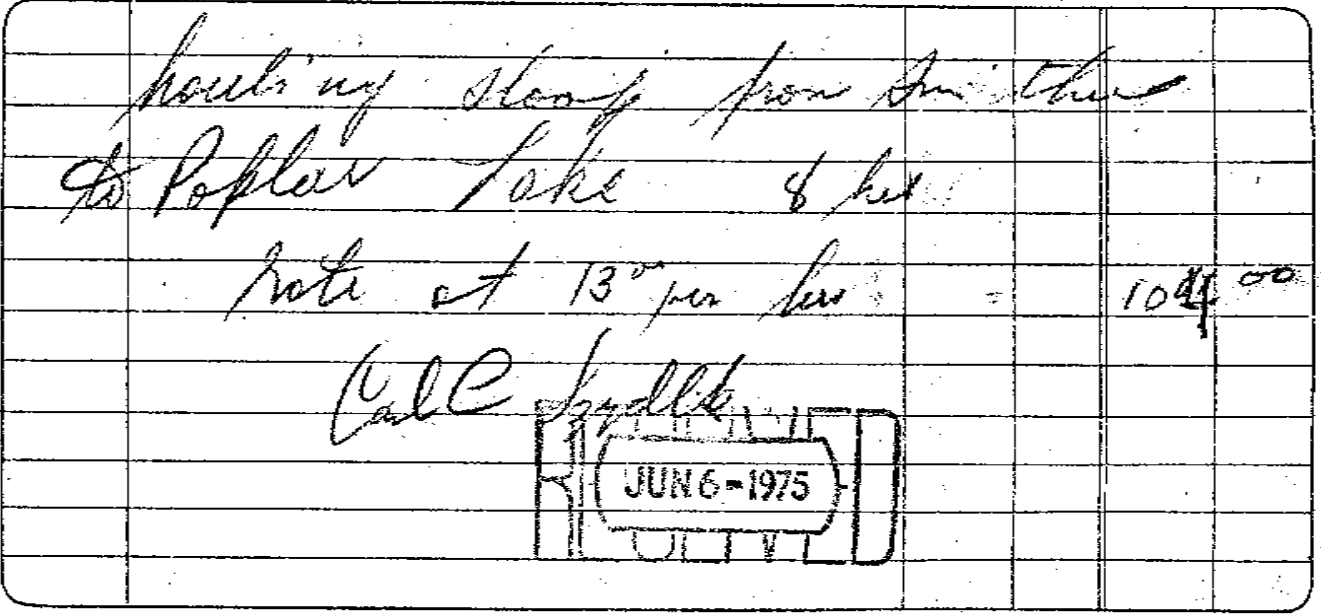 hauling stoof from Smithers
to Poplar Lake 8 hrs
rate at 13⁰⁰ per hr = 104.00
Carl C
JUN 6-1975